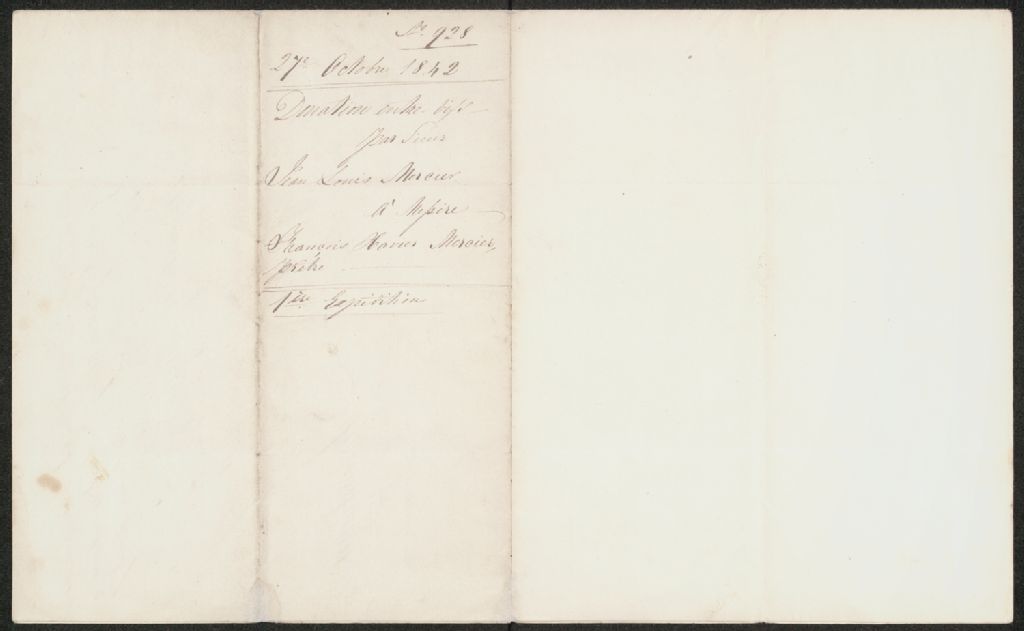 No. 928
27e Octobre 1842
Donation entre vifs
par Sieur
Jean Louis Mercier
à Messire
François Xavier Mercier,
prêtre
1ère Expédition